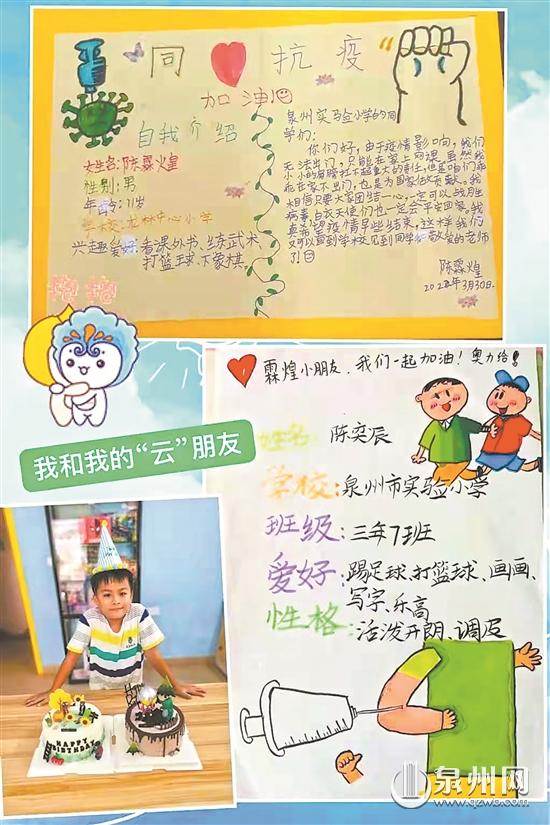 同 抗疫
加油
自我介绍
姓名:陈霖煌
性别:男
年龄:11岁
学校:龙林中心小学
兴趣爱好:看课外书、练武术、
打篮球、下象棋。
泉州实验小学的同
学们:
你们好,由于疫情影响,我们
无法出门,只能在家上网课,虽然我
小小的肩膀扛不起重大的责任,但是咱们乖
乖在家不出门,也是为国家做贡献。我
相信只要大家团结一心,一定可以战胜
病毒,白衣天使们也一定会平安回家,我
真希望疫情早些结束,这样我们
又可以回到学校见到同学和敬爱的老师
了!
陈霖煌
2022年3月30日.
抱抱
我和我的“云”朋友
霖煌小朋友,我们一起加油!奥力给!
姓名:陈奕辰
学校:泉州市实验小学
班级:三年7班
爱好:踢足球、打篮球、画画、
写字、乐高
性格:活泼开朗、调皮
HAPPY
BIRTHDAY
泉州网
www.qzwb.com